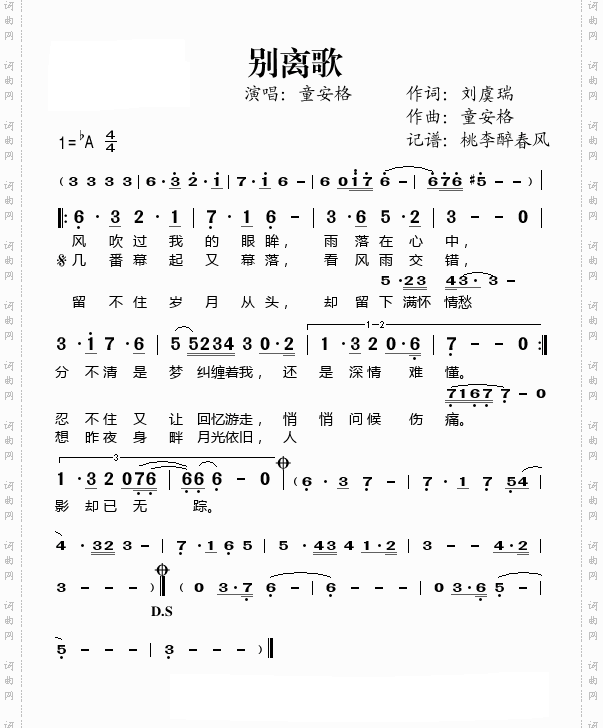 别离歌
演唱：童安格 作词：刘虞瑞
作曲：童安格
1=♭A 4/4 记谱：桃李醉春风
（3 3 3 3｜6·3 2·1｜7·1 6 –｜6 0176 –｜676 #5 – –）｜
‖:6·3 2·1｜7·1 6 –｜3·6 5·2｜3 – – 0｜
风 吹 过 我 的 眼 眸， 雨 落 在 心 中，
𝄋几 番 幕 起 又 幕 落， 看 风 雨 交 错，
5·23 43·3 –
留 不 住 岁 月 从 头， 却 留 下 满怀 情愁
1–2
3·1 7·6｜5 5234 3 0·2｜1·3 2 0·6｜7 – – 0:‖
分 不 清 是 梦 纠缠着我， 还 是 深 情 难 懂。
7167 7 – 0
忍 不 住 又 让 回忆游走， 悄 悄 问 候 伤 痛。
想 昨 夜 身 畔 月光依旧， 人
3
1·3 2 076｜66 6 – 0 （6·3 7 –｜7·1 7 54｜
影 却 已 无 踪。
4·32 3 –｜7·16 5｜5·43 4 1·2｜3 – – 4·2｜
3 – – –）‖（0 3·7 6 –｜6 – – –｜0 3·6 5 –｜
D.S
5 – – –｜3 – – –）‖
词曲网
词曲网
词曲网
词曲网
词曲网
词曲网
词曲网
词曲网
词曲网
词曲网
词曲网
词曲网